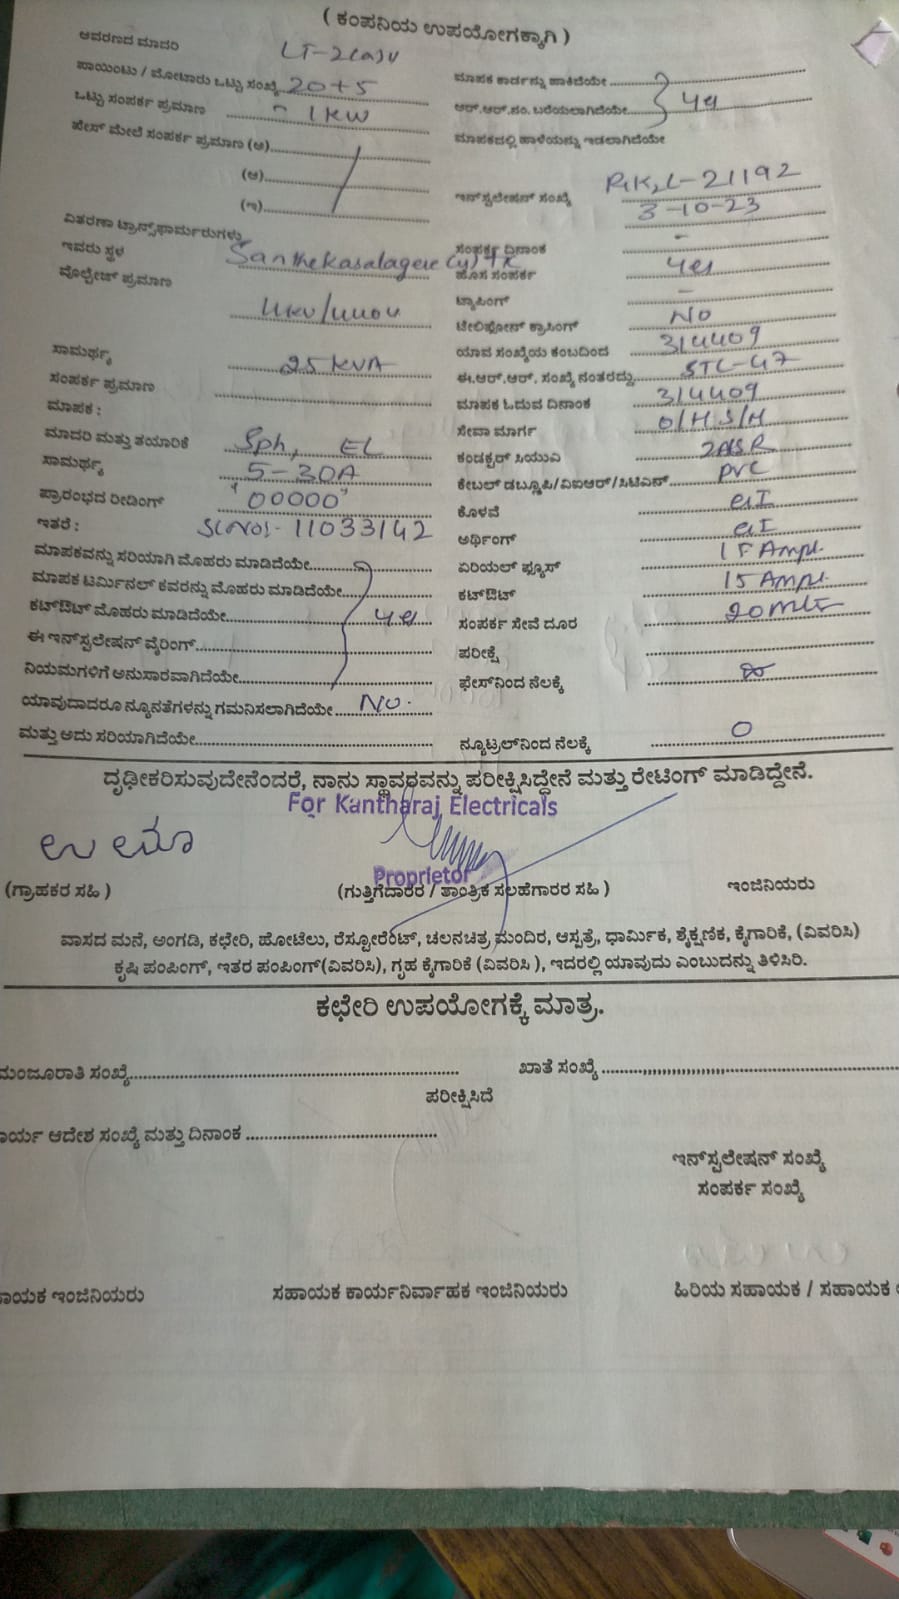 ( ಕಂಪನಿಯ ಉಪಯೋಗಕ್ಕಾಗಿ )
ಆವರಣದ ಮಾದರಿ
ಪಾಯಿಂಟು / ಮೋಟಾರು ಒಟ್ಟು ಸಂಖ್ಯೆ 20+5
ಒಟ್ಟು ಸಂಪರ್ಕ ಪ್ರಮಾಣ 1KW
ಫೇಸ್ ಮೇಲೆ ಸಂಪರ್ಕ ಪ್ರಮಾಣ (ಅ)
(ಆ)
(ಇ)
ವಿತರಣಾ ಟ್ರಾನ್ಸ್‌ಫಾರ್ಮರುಗಳು
ಇವರು ಸ್ಥಳ Santhekasalagere
ವೋಲ್ಟೇಜ್ ಪ್ರಮಾಣ
ಸಾಮರ್ಥ್ಯ 25 KVA
ಸಂಪರ್ಕ ಪ್ರಮಾಣ
ಮಾಪಕ :
ಮಾದರಿ ಮತ್ತು ತಯಾರಿಕೆ Sph, EL
ಸಾಮರ್ಥ್ಯ 5-30A
ಪ್ರಾರಂಭದ ರೀಡಿಂಗ್ "00000"
ಇತರೆ : Sl No:- 11033142
ಮಾಪಕವನ್ನು ಸರಿಯಾಗಿ ಮೊಹರು ಮಾಡಿದೆಯೇ
ಮಾಪಕ ಟರ್ಮಿನಲ್ ಕವರನ್ನು ಮೊಹರು ಮಾಡಿದೆಯೇ
ಕಟ್‌ಔಟ್ ಮೊಹರು ಮಾಡಿದೆಯೇ
ಈ ಇನ್‌ಸ್ಟಲೇಷನ್ ವೈರಿಂಗ್
ನಿಯಮಗಳಿಗೆ ಅನುಸಾರವಾಗಿದೆಯೇ
ಯಾವುದಾದರೂ ನ್ಯೂನತೆಗಳನ್ನು ಗಮನಿಸಲಾಗಿದೆಯೇ No.
ಮತ್ತು ಅದು ಸರಿಯಾಗಿದೆಯೇ
ಮಾಪಕ ಕಾರ್ಡನ್ನು ಹಾಕಿದೆಯೇ
ಆರ್.ಆರ್.ನಂ. ಬರೆಯಲಾಗಿದೆಯೇ
ಮಾಪಕದಲ್ಲಿ ಹಾಳೆಯನ್ನು ಇಡಲಾಗಿದೆಯೇ
ಇನ್‌ಸ್ಟಲೇಷನ್ ಸಂಖ್ಯೆ
3-10-23
ಸಂಪರ್ಕ ದಿನಾಂಕ -
ಹೊಸ ಸಂಪರ್ಕ
ಟ್ಯಾಪಿಂಗ್ -
ಟೇಲಿಫೋನ್ ಕ್ರಾಸಿಂಗ್ No
ಯಾವ ಸಂಖ್ಯೆಯ ಕಂಬದಿಂದ 314409
ಈ.ಆರ್.ಆರ್. ಸಂಖ್ಯೆ ನಂತರದ್ದು STL-47
ಮಾಪಕ ಓದುವ ದಿನಾಂಕ 314409
ಸೇವಾ ಮಾರ್ಗ O/H S/H
ಕಂಡಕ್ಟರ್ ಸಿಯುಎ
ಕೇಬಲ್ ಡಬ್ಲೂಪಿ/ವಿಐಆರ್/ಸಿಟಿಎಸ್ PVC
ಕೊಳವೆ
ಅರ್ಥಿಂಗ್
ಏರಿಯಲ್ ಫ್ಯೂಸ್
ಕಟ್‌ಔಟ್ 15 Amp
ಸಂಪರ್ಕ ಸೇವೆ ದೂರ
ಪರೀಕ್ಷೆ
ಫೇಸ್‌ನಿಂದ ನೆಲಕ್ಕೆ
ನ್ಯೂಟ್ರಲ್‌ನಿಂದ ನೆಲಕ್ಕೆ 0
ದೃಢೀಕರಿಸುವುದೇನೆಂದರೆ, ನಾನು ಸ್ಥಾವರವನ್ನು ಪರೀಕ್ಷಿಸಿದ್ದೇನೆ ಮತ್ತು ರೇಟಿಂಗ್ ಮಾಡಿದ್ದೇನೆ.
For Kantharaj Electricals
ಉಮಾ
Proprietor
(ಗ್ರಾಹಕರ ಸಹಿ ) (ಗುತ್ತಿಗೆದಾರರ / ತಾಂತ್ರಿಕ ಸಲಹೆಗಾರರ ಸಹಿ ) ಇಂಜಿನಿಯರು
ವಾಸದ ಮನೆ, ಅಂಗಡಿ, ಕಛೇರಿ, ಹೋಟೆಲು, ರೆಸ್ಟೋರೆಂಟ್, ಚಲನಚಿತ್ರ ಮಂದಿರ, ಆಸ್ಪತ್ರೆ, ಧಾರ್ಮಿಕ, ಶೈಕ್ಷಣಿಕ, ಕೈಗಾರಿಕೆ, (ವಿವರಿಸಿ)
ಕೃಷಿ ಪಂಪಿಂಗ್, ಇತರ ಪಂಪಿಂಗ್(ವಿವರಿಸಿ), ಗೃಹ ಕೈಗಾರಿಕೆ (ವಿವರಿಸಿ ), ಇದರಲ್ಲಿ ಯಾವುದು ಎಂಬುದನ್ನು ತಿಳಿಸಿರಿ.
ಕಛೇರಿ ಉಪಯೋಗಕ್ಕೆ ಮಾತ್ರ.
ಮಂಜೂರಾತಿ ಸಂಖ್ಯೆ ಖಾತೆ ಸಂಖ್ಯೆ
ಪರೀಕ್ಷಿಸಿದೆ
ಆದೇಶ ಸಂಖ್ಯೆ ಮತ್ತು ದಿನಾಂಕ
ಇನ್‌ಸ್ಟಲೇಷನ್ ಸಂಖ್ಯೆ
ಸಂಪರ್ಕ ಸಂಖ್ಯೆ
ಇಂಜಿನಿಯರು ಸಹಾಯಕ ಕಾರ್ಯನಿರ್ವಾಹಕ ಇಂಜಿನಿಯರು ಹಿರಿಯ ಸಹಾಯಕ / ಸಹಾಯಕ